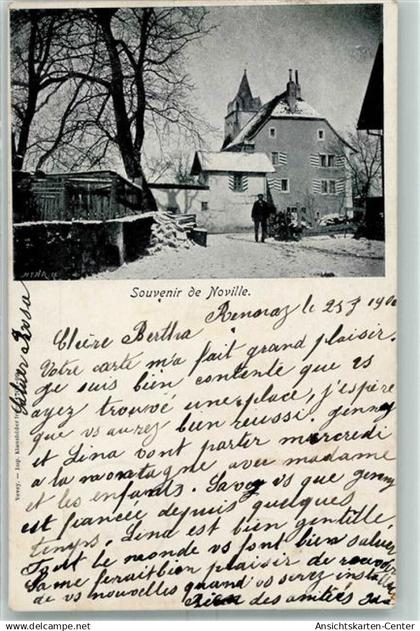 Souvenir de Noville.
Renoraz le 25 J 190
Chère Bertha
Votre carte m'a fait grand plaisir.
Je suis bien contente que vs
ayez trouvé une place, j'espère
que vs aurez bien réussi. Jenny
et Lina vont partir mercredi
à la montagne, avec madame
et les enfants. Savez vs que Jenny
est fiancée depuis quelques
temps, Lina est bien gentille,
tout le monde vs font bien saluer
bien plaisir de
de vs nouvelles quand vs serez
des amitiés
Vevey. — Imp. Klausfelder
Ansichtskarten-Center